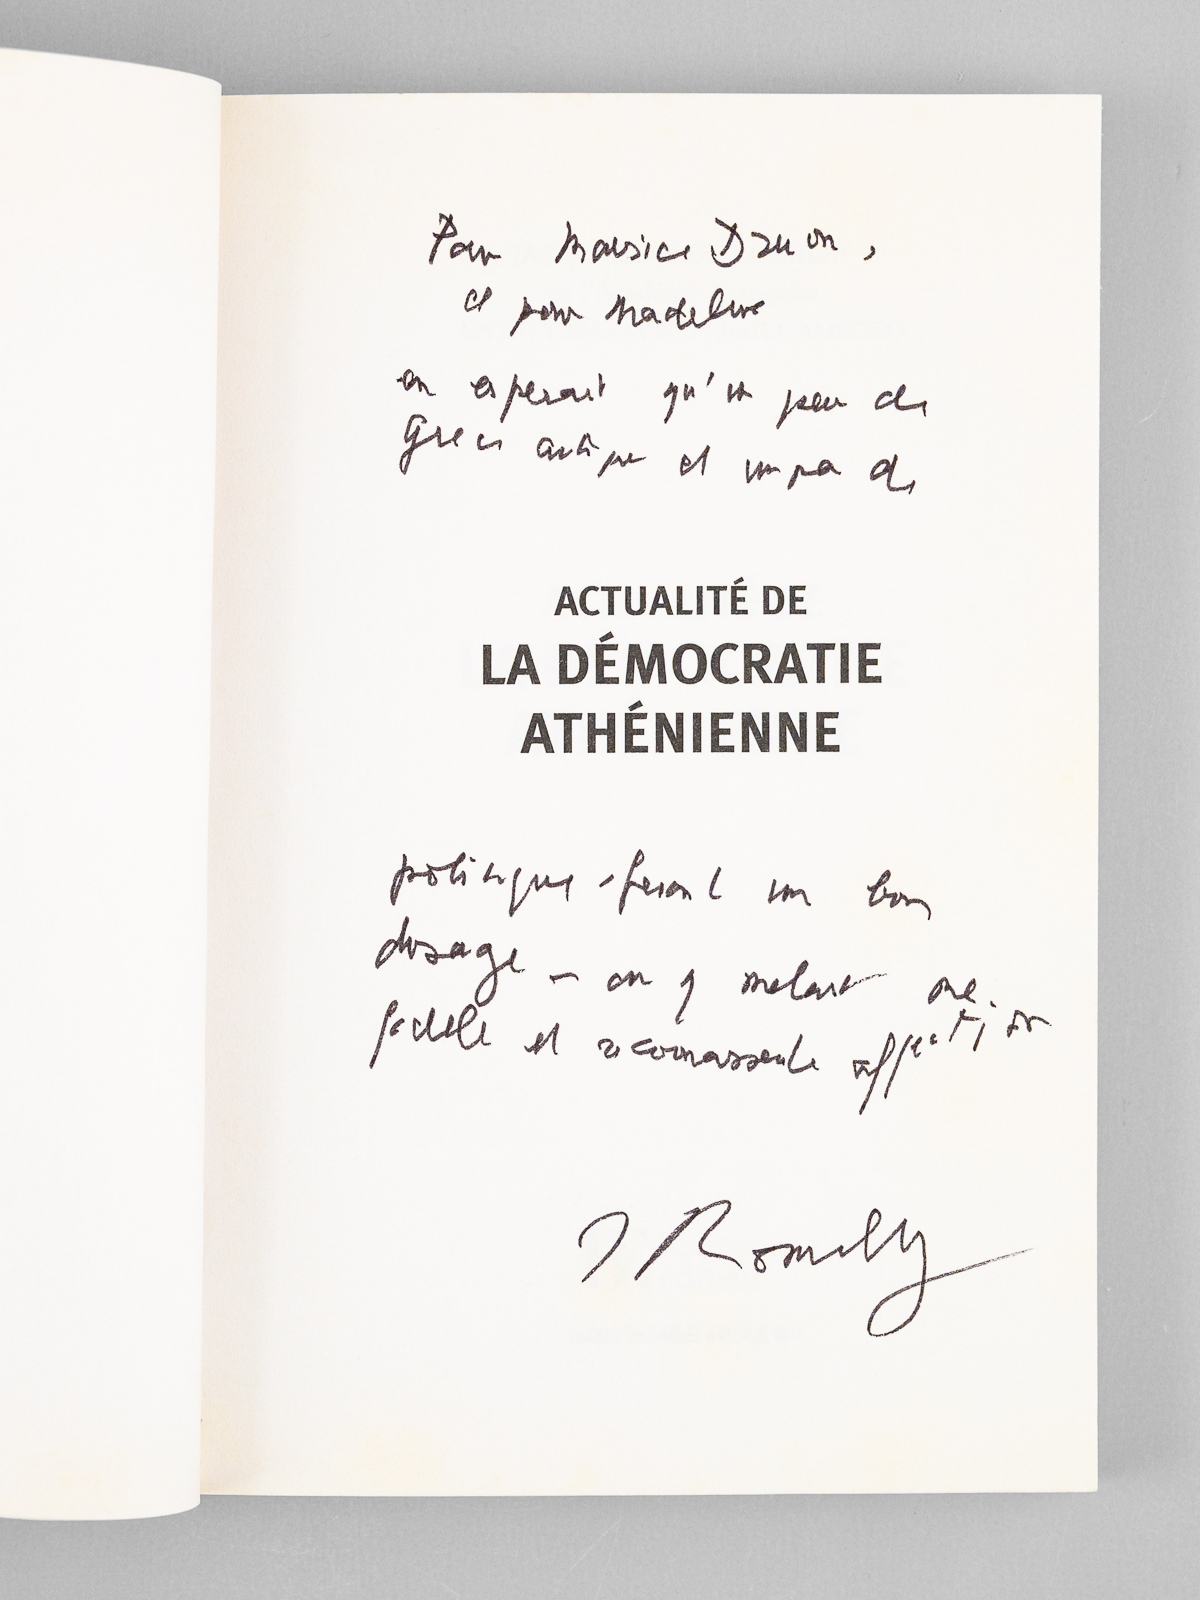 Pour Maurice Druon,
et pour Madeleine
en espérant qu'un peu de
Grèce antique et un peu de
ACTUALITÉ DE
LA DÉMOCRATIE
ATHÉNIENNE
politique - feront un bon
dosage - en y mêlant ma
fidèle et reconnaissante affection
J Romilly